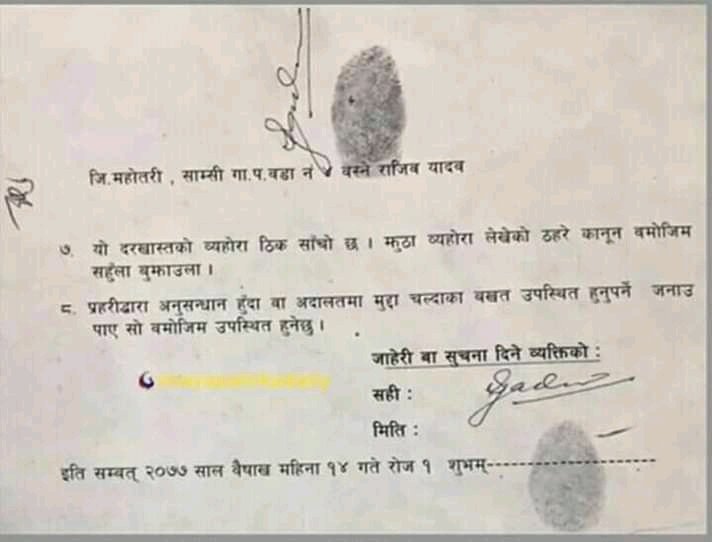 जि.महोतरी , साम्सी गा.प.वडा नं ४ वस्ने राजिव यादव
७. यो दरखास्तको व्यहोरा ठिक साँचो छ । झुठा व्यहोरा लेखेको ठहरे कानून वमोजिम
सहुँला बुझाउला ।
८. प्रहरीद्वारा अनुसन्धान हुँदा वा अदालतमा मुद्दा चल्दाका बखत उपस्थित हुनुपर्ने जनाउ
पाए सो वमोजिम उपस्थित हुनेछु ।
जाहेरी बा सुचना दिने व्यक्तिको :
सही :
मिति :
इति सम्वत् २०७७ साल वैषाख महिना १४ गते रोज १ शुभम्--------------------